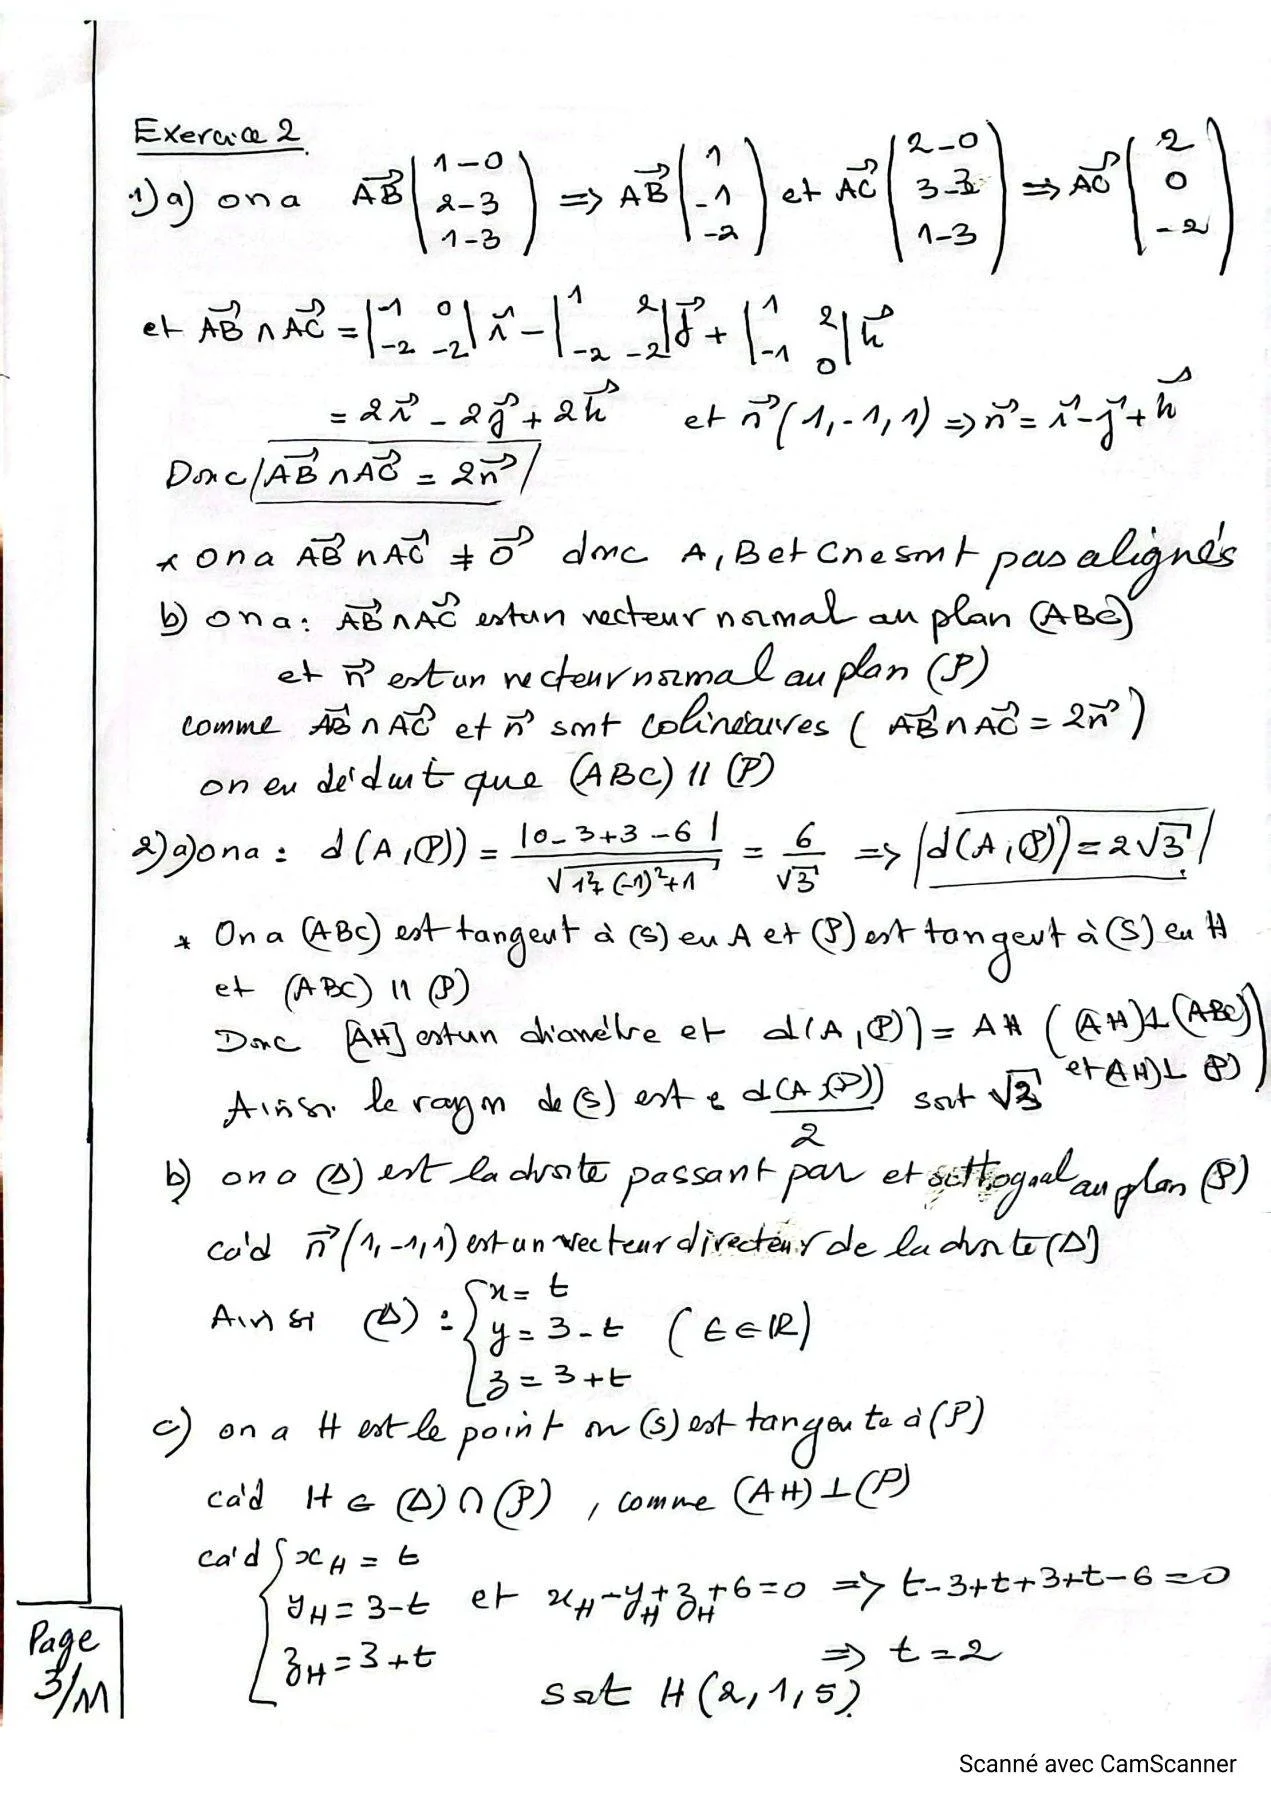 Exercice 2
1) a) on a $\overrightarrow{AB}\begin{pmatrix}1-0\\2-3\\1-3\end{pmatrix} \Rightarrow \overrightarrow{AB}\begin{pmatrix}1\\-1\\-2\end{pmatrix}$ et $\overrightarrow{AC}\begin{pmatrix}2-0\\3-3\\1-3\end{pmatrix} \Rightarrow \overrightarrow{AC}\begin{pmatrix}2\\0\\-2\end{pmatrix}$
et $\overrightarrow{AB} \wedge \overrightarrow{AC} = \begin{vmatrix}-1 & 0\\-2 & -2\end{vmatrix}\vec{i} - \begin{vmatrix}1 & 2\\-2 & -2\end{vmatrix}\vec{j} + \begin{vmatrix}1 & 2\\-1 & 0\end{vmatrix}\vec{k}$
$= 2\vec{i} - 2\vec{j} + 2\vec{k}$ et $\vec{n}(1,-1,1) \Rightarrow \vec{n} = \vec{i} - \vec{j} + \vec{k}$
Donc $\overrightarrow{AB} \wedge \overrightarrow{AC} = 2\vec{n}$
* on a $\overrightarrow{AB} \wedge \overrightarrow{AC} \neq \vec{0}$ donc A, B et C ne sont pas alignés
b) on a : $\overrightarrow{AB} \wedge \overrightarrow{AC}$ est un vecteur normal au plan (ABC)
et $\vec{n}$ est un vecteur normal au plan (P)
comme $\overrightarrow{AB} \wedge \overrightarrow{AC}$ et $\vec{n}$ sont colinéaires ( $\overrightarrow{AB} \wedge \overrightarrow{AC} = 2\vec{n}$ )
on en déduit que (ABC) // (P)
2) a) on a : $d(A,(P)) = \frac{|0-3+3-6|}{\sqrt{1^2+(-1)^2+1}} = \frac{6}{\sqrt{3}} \Rightarrow d(A,(P)) = 2\sqrt{3}$
* On a (ABC) est tangent à (S) en A et (P) est tangent à (S) en H
et (ABC) // (P)
Donc [AH] est un diamètre et d(A,(P)) = AH ( (AH)⊥(ABC) et (AH)⊥(P) )
Ainsi le rayon de (S) est $\frac{d(A,(P))}{2}$ soit $\sqrt{3}$
b) on a (Δ) est la droite passant par et orthogonal au plan (P)
cà'd $\vec{n}(1,-1,1)$ est un vecteur directeur de la droite (Δ)
Ainsi (Δ) : $\begin{cases}x = t\\y = 3-t\\z = 3+t\end{cases}$ (t ∈ ℝ)
c) on a H est le point où (S) est tangente à (P)
cà'd H ∈ (Δ) ∩ (P) , comme (AH) ⊥ (P)
cà'd $\begin{cases}x_H = t\\y_H = 3-t\\z_H = 3+t\end{cases}$ et $x_H - y_H + z_H + 6 = 0 \Rightarrow t-3+t+3+t-6=0$
⇒ t = 2
soit H(2,1,5)
Page
3/11
Scanné avec CamScanner